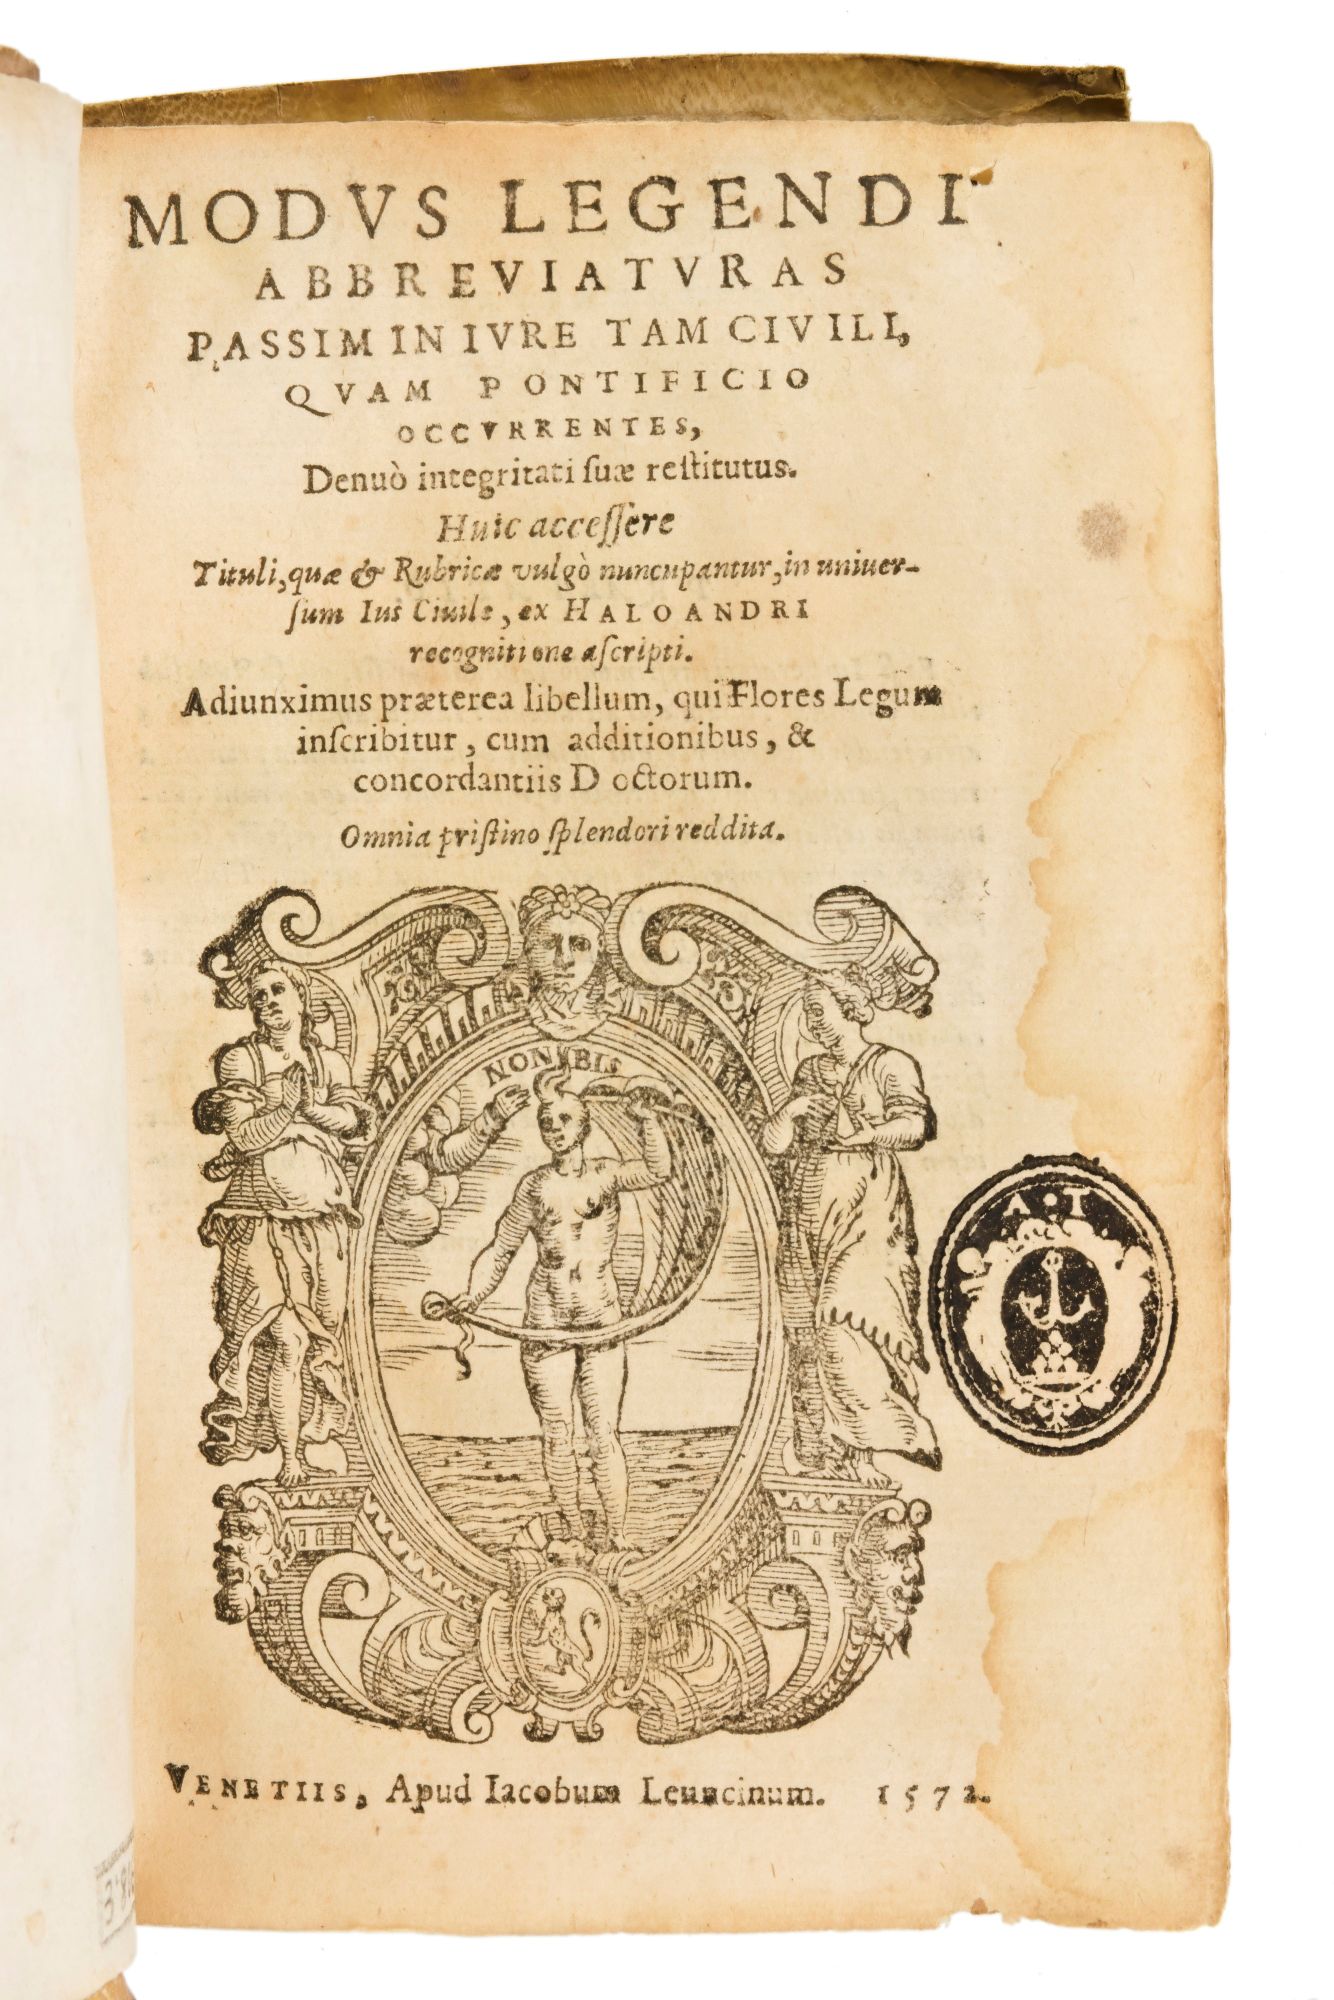 MODVS LEGENDI
ABBREVIATVRAS
PASSIM IN IVRE TAM CIVILI,
QVAM PONTIFICIO
OCCVRRENTES,
Denuò integritati ſuæ reſtitutus.
Huic acceſſere
Tituli, quæ & Rubricæ vulgò nuncupantur, in uniuer-
ſum Ius Ciuile, ex HALOANDRI
recognitione aſcripti.
Adiunximus præterea libellum, qui Flores Legum
inſcribitur, cum additionibus, &
concordantiis Doctorum.
Omnia priſtino ſplendori reddita.
NON BIS
A. T.
VENETIIS, Apud Iacobum Leuncinum. 1572.